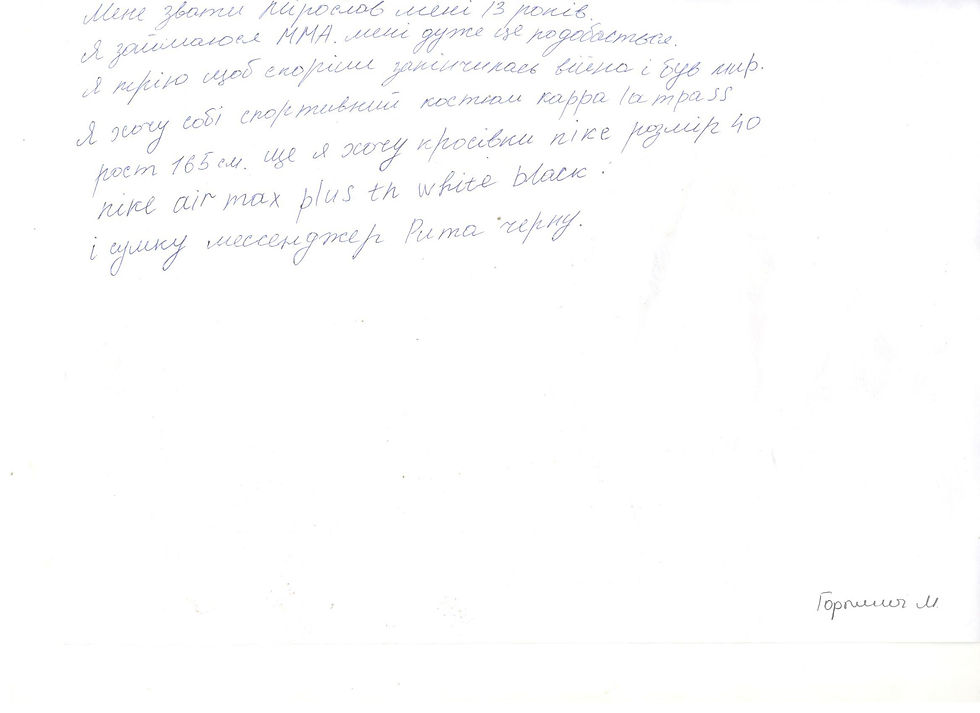 Мене звати Мирослав мені 13 років.
Я займаюся ММА. мені дуже це подобається.
Я мрію щоб скоріш закінчилась війна і був мир.
Я хочу собі спортивний костюм kappa lampass
рост 165 см. ще я хочу кросівки nike розмір 40
nike air max plus tn white black!
і сумку мессенджер Puma черну.
М